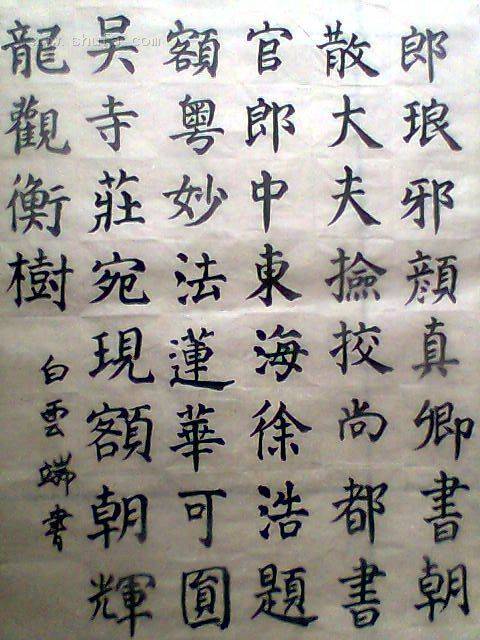 郎琅邪顔真卿書朝
散大夫撿挍尚都書
官郎中東海徐浩題
額粤妙法蓮華可圓
吴寺莊宛現額朝輝
龍觀衡樹
白雲端書